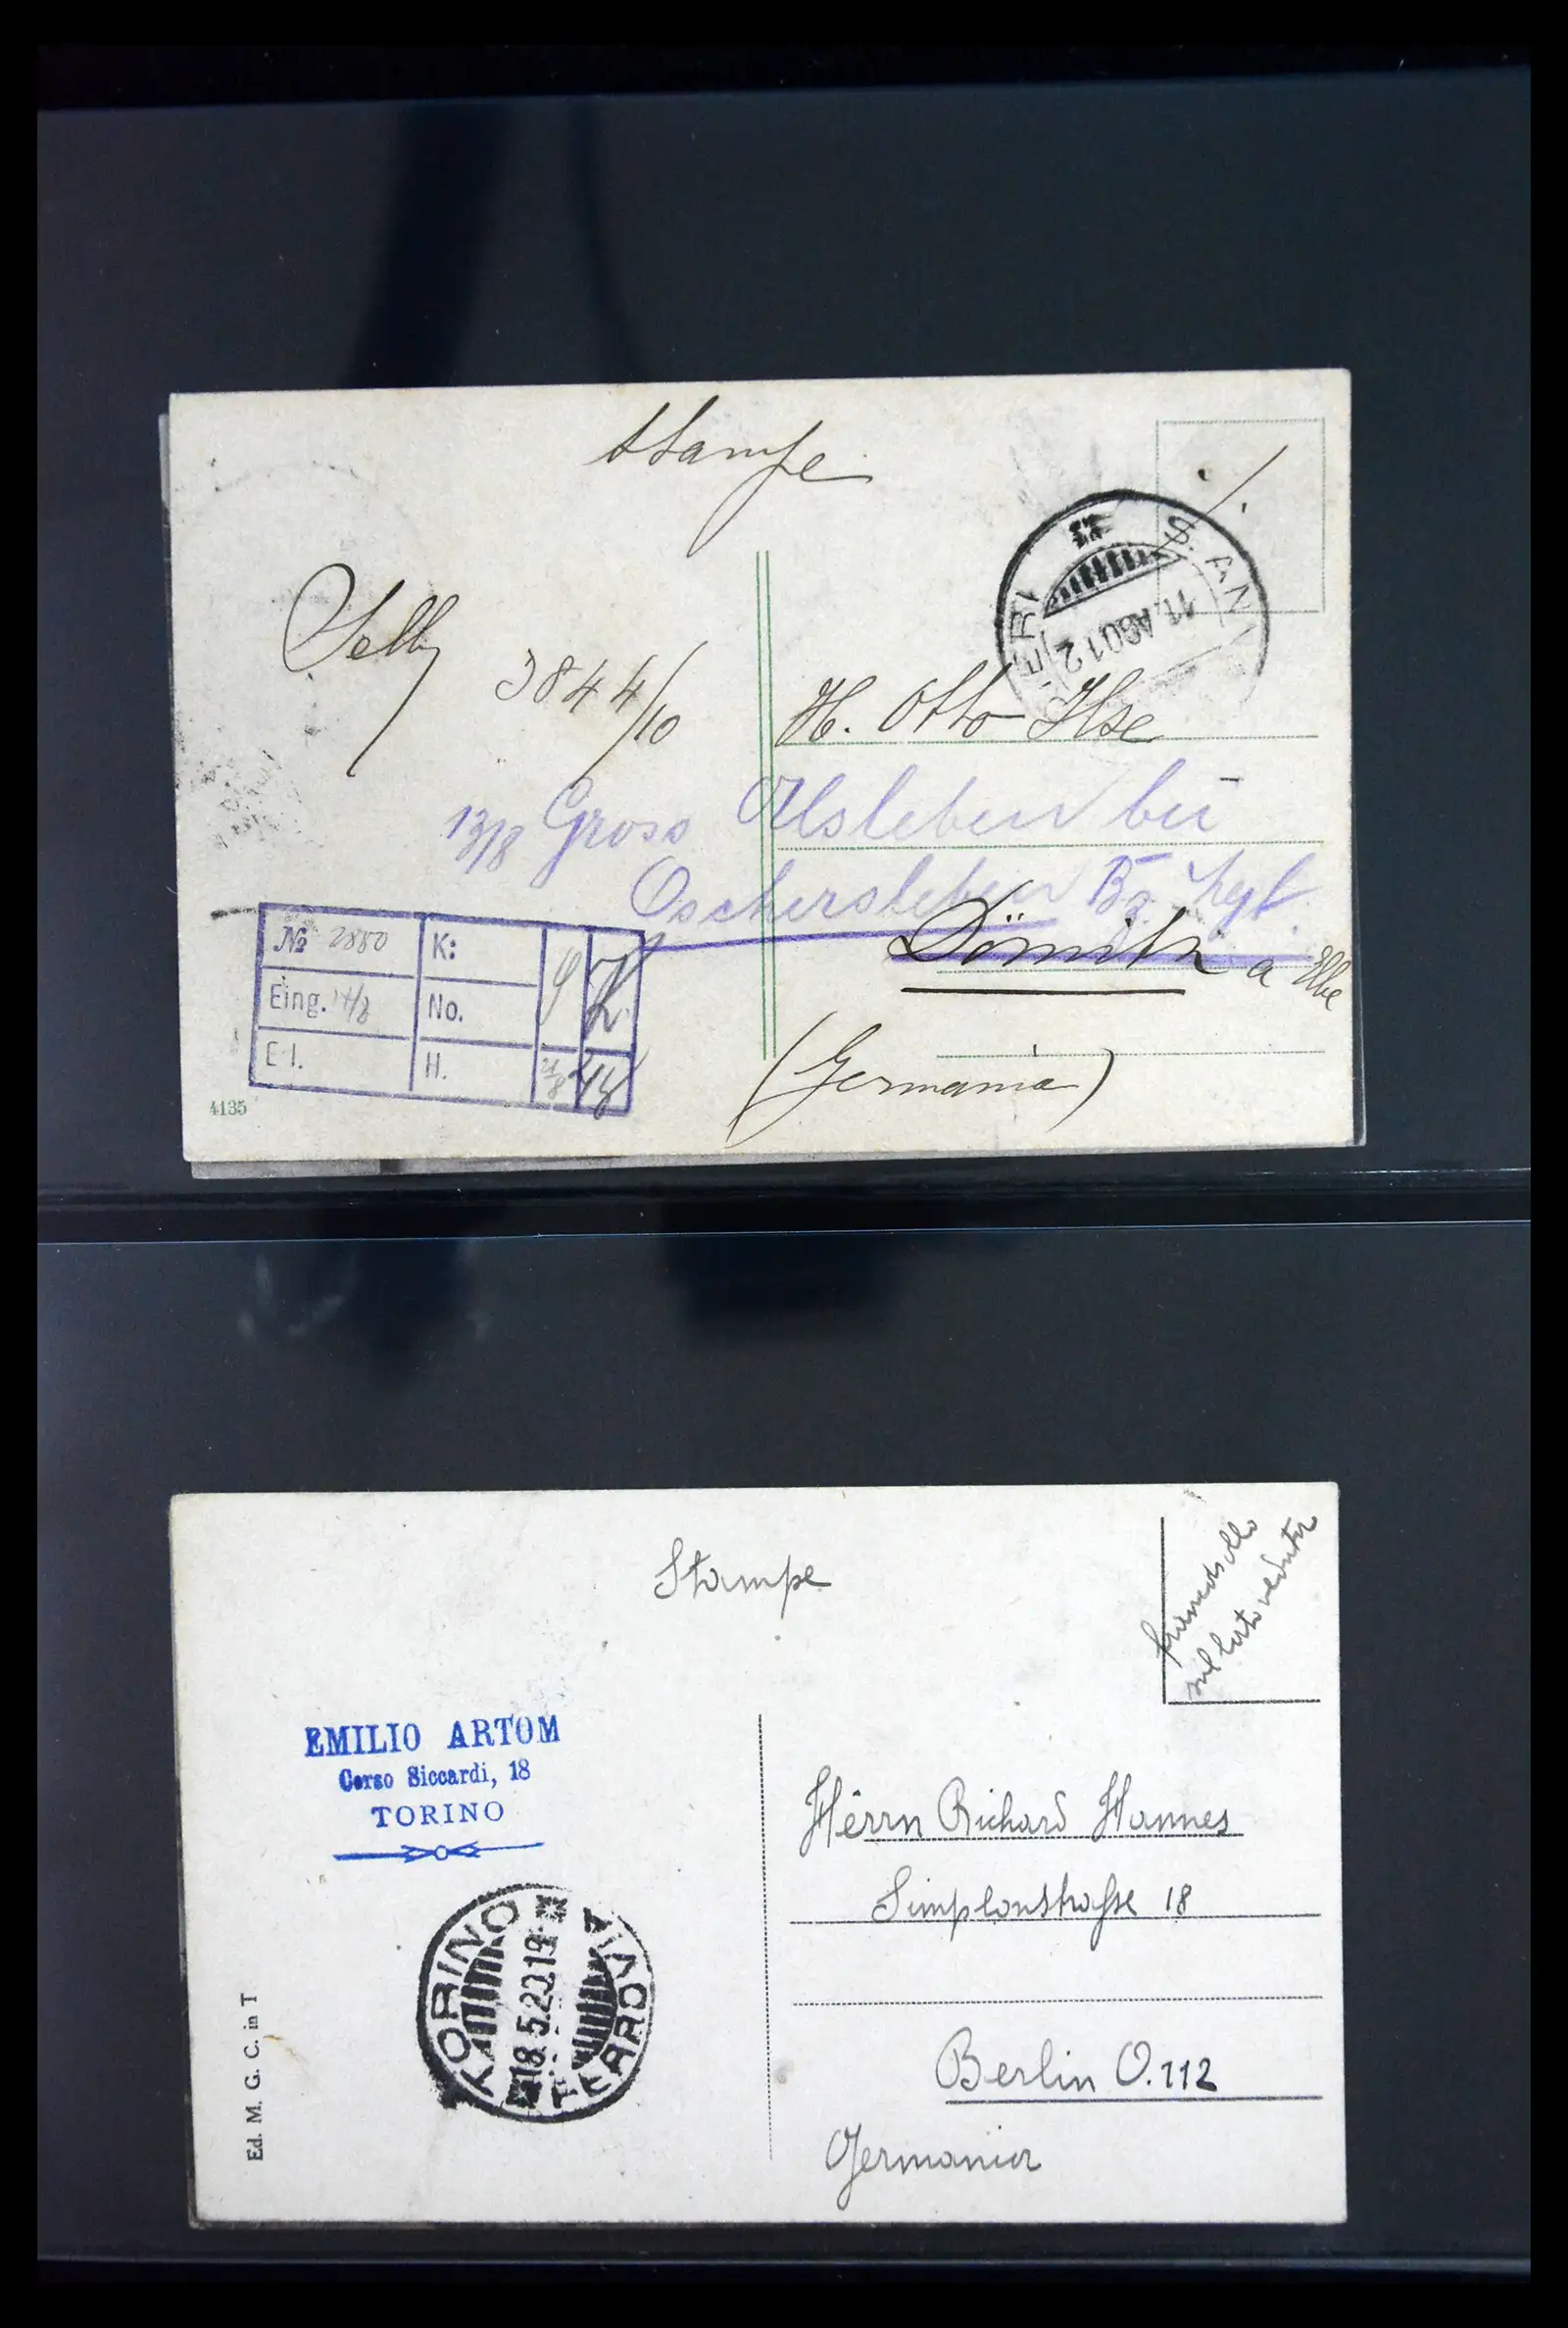 Stampe
Selby
3844/10
H. Otto Ilse
13/8 Gross Alsleben bei
Oschersleben Bz.
Dömitz a Elbe
(Germania)
S. ANT
11. AGO 12
№ 2880
K:
Eing. 14/8
No.
E I.
H.
4135
Stampe
francobollo
sul lato veduta
EMILIO ARTOM
Corso Siccardi, 18
TORINO
Herrn Richard Hannes
Simplonstraße 18
Berlin O.112
Germania
TORINO
18.5.20 19
FERROVIA
Ed. M. G. C. in T